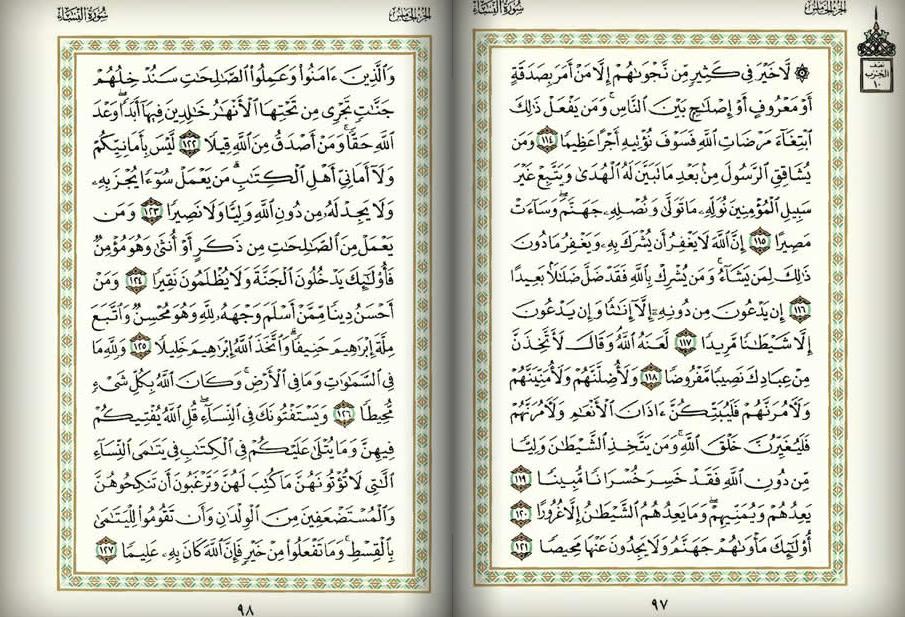 الجزء الخامس
سُورَةُ النِّسَاءِ
نصف
الحزب
١٠
۞ لَّا خَيْرَ فِى كَثِيرٍ مِّن نَّجْوَىٰهُمْ إِلَّا مَنْ أَمَرَ بِصَدَقَةٍ
أَوْ مَعْرُوفٍ أَوْ إِصْلَٰحٍۭ بَيْنَ النَّاسِ ۚ وَمَن يَفْعَلْ ذَٰلِكَ
ابْتِغَآءَ مَرْضَاتِ اللَّهِ فَسَوْفَ نُؤْتِيهِ أَجْرًا عَظِيمًا ١١٤ وَمَن
يُشَاقِقِ الرَّسُولَ مِنۢ بَعْدِ مَا تَبَيَّنَ لَهُ الْهُدَىٰ وَيَتَّبِعْ غَيْرَ
سَبِيلِ الْمُؤْمِنِينَ نُوَلِّهِۦ مَا تَوَلَّىٰ وَنُصْلِهِۦ جَهَنَّمَ ۖ وَسَآءَتْ
مَصِيرًا ١١٥ إِنَّ اللَّهَ لَا يَغْفِرُ أَن يُشْرَكَ بِهِۦ وَيَغْفِرُ مَا دُونَ
ذَٰلِكَ لِمَن يَشَآءُ ۚ وَمَن يُشْرِكْ بِاللَّهِ فَقَدْ ضَلَّ ضَلَٰلًۢا بَعِيدًا
١١٦ إِن يَدْعُونَ مِن دُونِهِۦٓ إِلَّآ إِنَٰثًا وَإِن يَدْعُونَ
إِلَّا شَيْطَٰنًا مَّرِيدًا ١١٧ لَّعَنَهُ اللَّهُ ۘ وَقَالَ لَأَتَّخِذَنَّ
مِنْ عِبَادِكَ نَصِيبًا مَّفْرُوضًا ١١٨ وَلَأُضِلَّنَّهُمْ وَلَأُمَنِّيَنَّهُمْ
وَلَءَامُرَنَّهُمْ فَلَيُبَتِّكُنَّ ءَاذَانَ الْأَنْعَٰمِ وَلَءَامُرَنَّهُمْ
فَلَيُغَيِّرُنَّ خَلْقَ اللَّهِ ۚ وَمَن يَتَّخِذِ الشَّيْطَٰنَ وَلِيًّا
مِّن دُونِ اللَّهِ فَقَدْ خَسِرَ خُسْرَانًا مُّبِينًا ١١٩
يَعِدُهُمْ وَيُمَنِّيهِمْ ۖ وَمَا يَعِدُهُمُ الشَّيْطَٰنُ إِلَّا غُرُورًا ١٢٠
أُو۟لَٰٓئِكَ مَأْوَىٰهُمْ جَهَنَّمُ وَلَا يَجِدُونَ عَنْهَا مَحِيصًا ١٢١
٩٧
الجزء الخامس
سُورَةُ النِّسَاءِ
وَالَّذِينَ ءَامَنُوا۟ وَعَمِلُوا۟ الصَّٰلِحَٰتِ سَنُدْخِلُهُمْ
جَنَّٰتٍ تَجْرِى مِن تَحْتِهَا الْأَنْهَٰرُ خَٰلِدِينَ فِيهَآ أَبَدًا ۖ وَعْدَ
اللَّهِ حَقًّا ۚ وَمَنْ أَصْدَقُ مِنَ اللَّهِ قِيلًا ١٢٢ لَّيْسَ بِأَمَانِيِّكُمْ
وَلَآ أَمَانِىِّ أَهْلِ الْكِتَٰبِ ۗ مَن يَعْمَلْ سُوٓءًا يُجْزَ بِهِۦ
وَلَا يَجِدْ لَهُۥ مِن دُونِ اللَّهِ وَلِيًّا وَلَا نَصِيرًا ١٢٣ وَمَن
يَعْمَلْ مِنَ الصَّٰلِحَٰتِ مِن ذَكَرٍ أَوْ أُنثَىٰ وَهُوَ مُؤْمِنٌ
فَأُو۟لَٰٓئِكَ يَدْخُلُونَ الْجَنَّةَ وَلَا يُظْلَمُونَ نَقِيرًا ١٢٤ وَمَنْ
أَحْسَنُ دِينًا مِّمَّنْ أَسْلَمَ وَجْهَهُۥ لِلَّهِ وَهُوَ مُحْسِنٌ وَاتَّبَعَ
مِلَّةَ إِبْرَٰهِيمَ حَنِيفًا ۗ وَاتَّخَذَ اللَّهُ إِبْرَٰهِيمَ خَلِيلًا ١٢٥ وَلِلَّهِ مَا
فِى السَّمَٰوَٰتِ وَمَا فِى الْأَرْضِ ۚ وَكَانَ اللَّهُ بِكُلِّ شَىْءٍ
مُّحِيطًا ١٢٦ وَيَسْتَفْتُونَكَ فِى النِّسَآءِ ۖ قُلِ اللَّهُ يُفْتِيكُمْ
فِيهِنَّ وَمَا يُتْلَىٰ عَلَيْكُمْ فِى الْكِتَٰبِ فِى يَتَٰمَى النِّسَآءِ
الَّٰتِى لَا تُؤْتُونَهُنَّ مَا كُتِبَ لَهُنَّ وَتَرْغَبُونَ أَن تَنكِحُوهُنَّ
وَالْمُسْتَضْعَفِينَ مِنَ الْوِلْدَٰنِ وَأَن تَقُومُوا۟ لِلْيَتَٰمَىٰ
بِالْقِسْطِ ۚ وَمَا تَفْعَلُوا۟ مِنْ خَيْرٍ فَإِنَّ اللَّهَ كَانَ بِهِۦ عَلِيمًا ١٢٧
٩٨